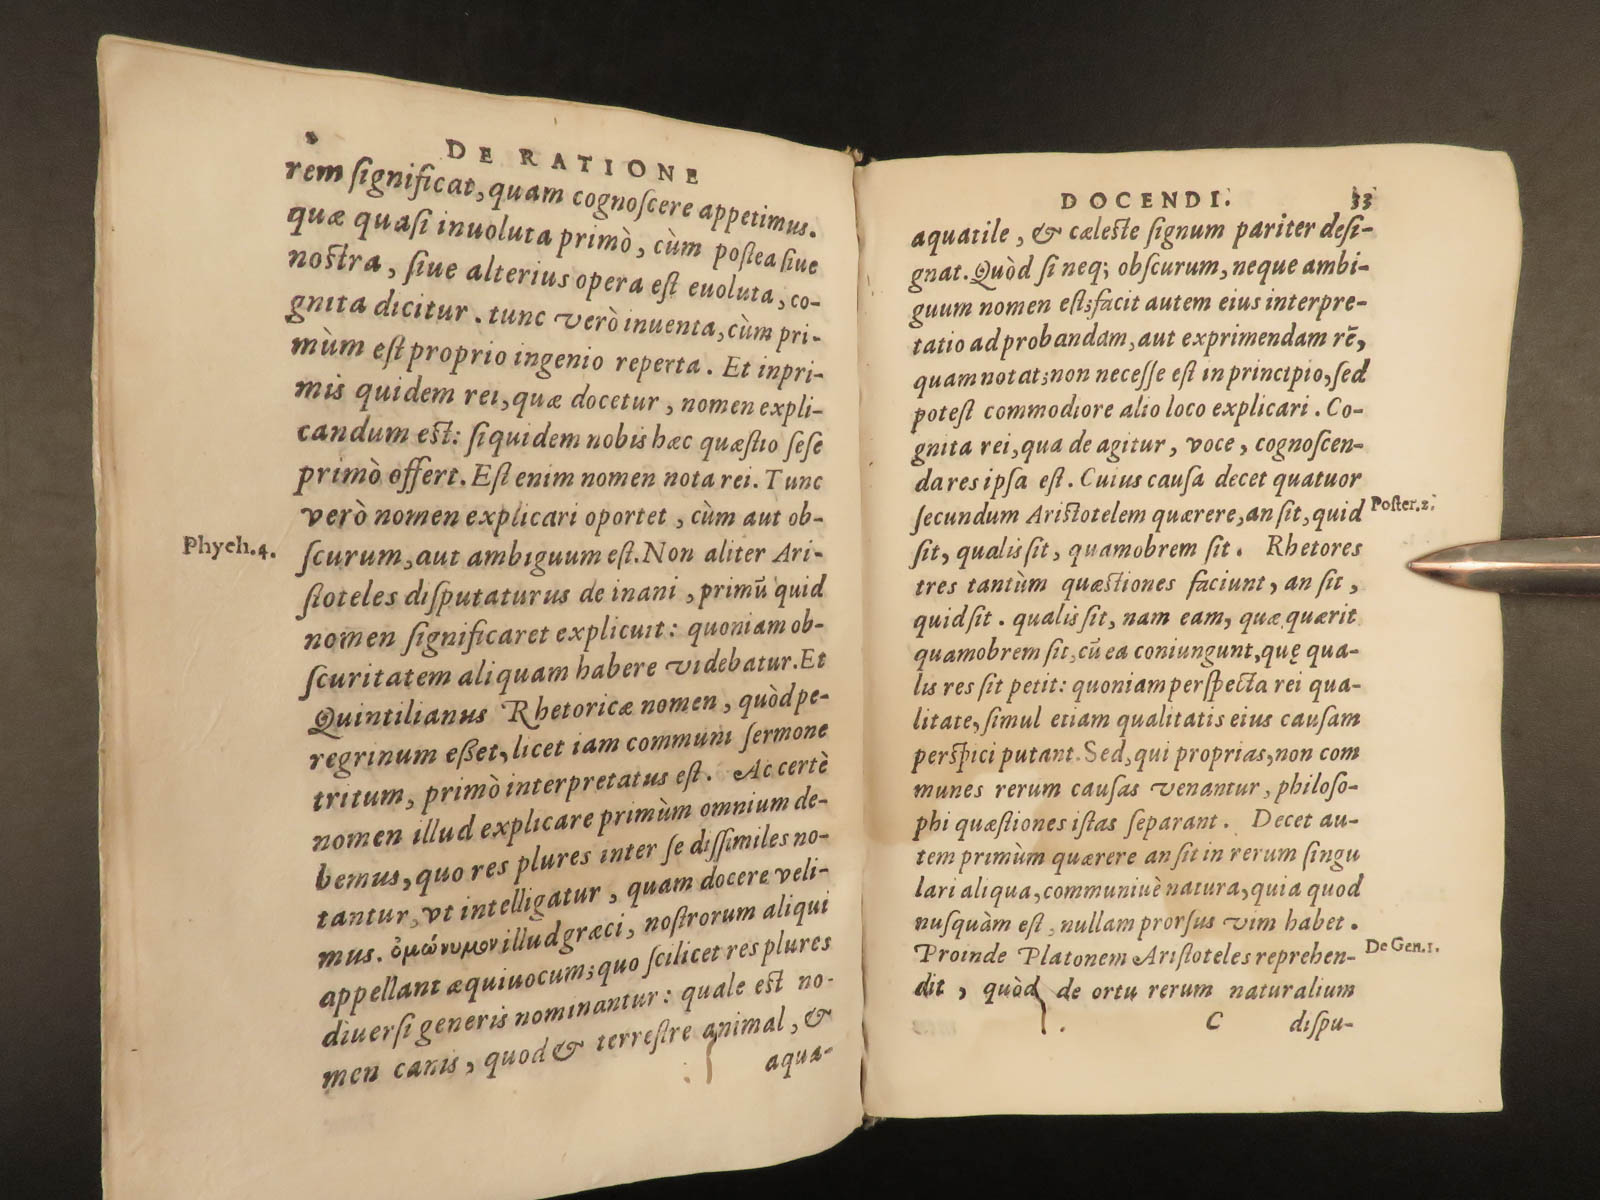 DE RATIONE
rem significat, quam cognoscere appetimus.
quæ quasi inuoluta primò, cùm postea siue
nostra, siue alterius opera est euoluta, co-
gnita dicitur. tunc verò inuenta, cùm pri-
mùm est proprio ingenio reperta. Et inpri-
mis quidem rei, quæ docetur, nomen expli-
candum est: siquidem nobis hæc quæstio sese
primò offert. Est enim nomen nota rei. Tunc
verò nomen explicari oportet, cùm aut ob-
Phych.4.
scurum, aut ambiguum est. Non aliter Ari-
stoteles disputaturus de inani, primū quid
nomen significaret explicuit: quoniam ob-
scuritatem aliquam habere videbatur. Et
Quintilianus Rhetoricæ nomen, quòd pe-
regrinum eßet, licet iam communi sermone
tritum, primò interpretatus est. Ac certè
nomen illud explicare primùm omnium de-
bemus, quo res plures inter se dissimiles no-
tantur, vt intelligatur, quam docere veli-
mus. ὁμώνυμον illud græci, nostrorum aliqui
appellant æquiuocum; quo scilicet res plures
diuersi generis nominantur: quale est no-
men canis, quod & terrestre animal, &
aqua-
DOCENDI.
33
aquatile, & cæleste signum pariter desi-
gnat. Quòd si neq; obscurum, neque ambi-
guum nomen est; facit autem eius interpre-
tatio ad probandam, aut exprimendam rē,
quam notat; non necesse est in principio, sed
potest commodiore alio loco explicari. Co-
gnita rei, qua de agitur, voce, cognoscen-
da res ipsa est. Cuius causa decet quatuor
secundum Aristotelem quærere, an sit, quid
Poster.2.
sit, qualis sit, quamobrem sit. Rhetores
tres tantùm quæstiones faciunt, an sit,
quid sit. qualis sit, nam eam, quæ quærit
quamobrem sit, cū ea coniungunt, quę qua-
lis res sit petit: quoniam perspecta rei qua-
litate, simul etiam qualitatis eius causam
perspici putant. Sed, qui proprias, non com
munes rerum causas venantur, philoso-
phi quæstiones istas separant. Decet au-
tem primùm quærere an sit in rerum singu
lari aliqua, communiuè natura, quia quod
nusquàm est, nullam prorsus vim habet.
Proinde Platonem Aristoteles reprehen-
De Gen.1.
dit, quòd de ortu rerum naturalium
C
dispu-